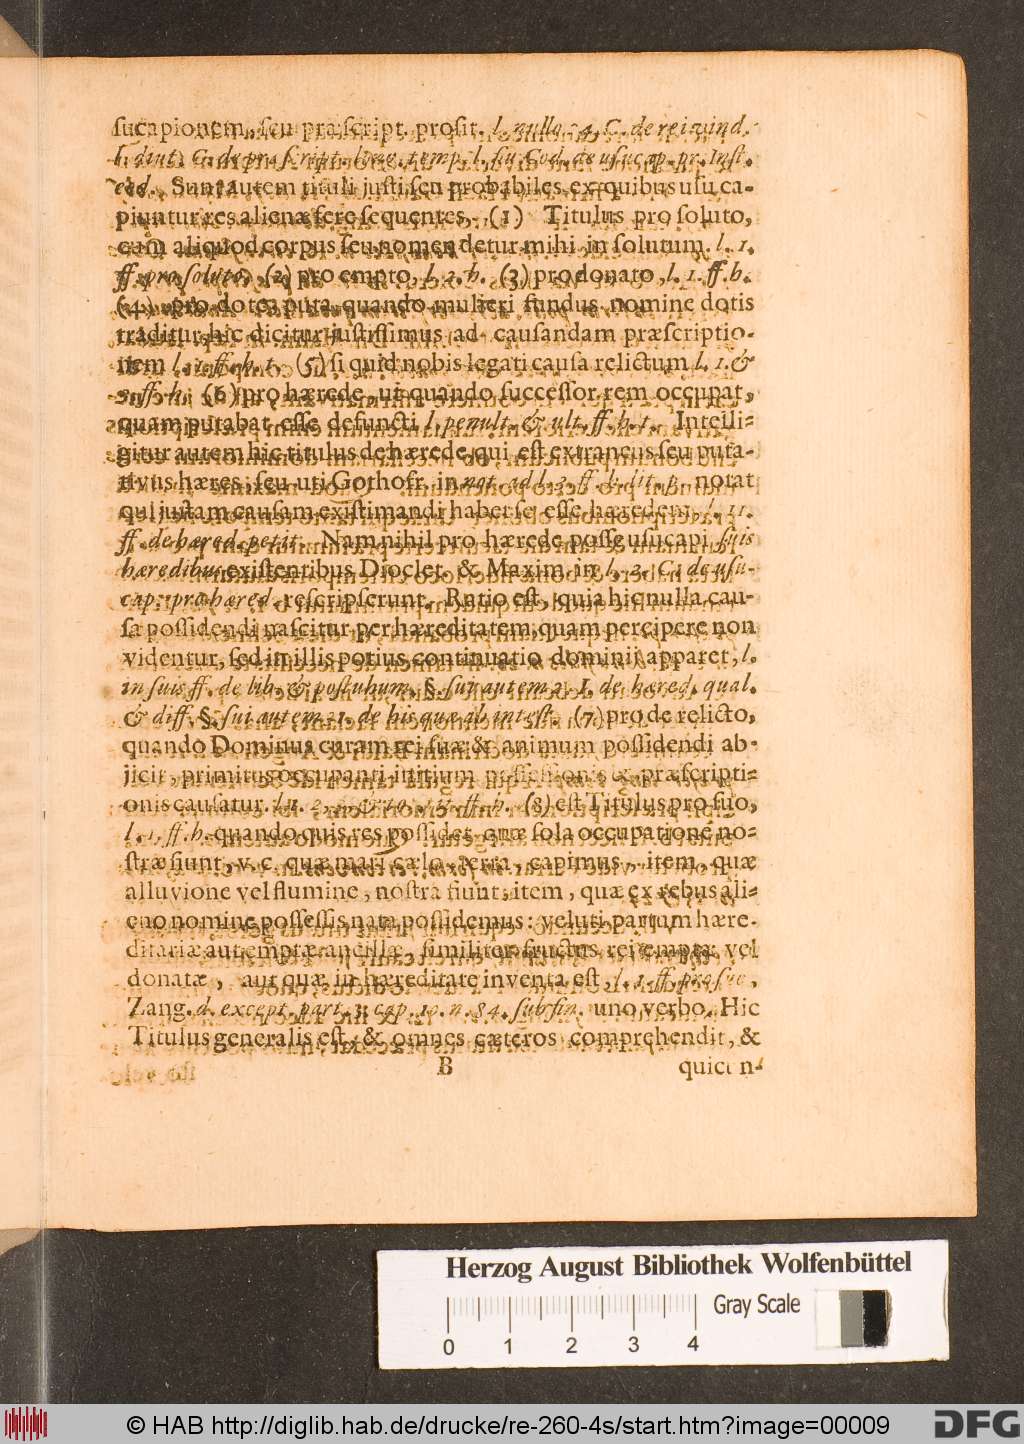 ſucapionem, ſeu præſcript. proſit. l. nullo. 24. C. de rei vind.
l. diut. C. de præſcript. long. temp. l. fin. Cod. de uſucap. pr. Inſt.
eod. Sunt autem tituli juſti, ſeu probabiles, ex quibus uſu ca-
piuntur res alienæ fere ſequentes, (1) Titulus pro ſoluto,
cum aliquod corpus ſeu nomen detur mihi in ſolutum. l. 1.
ff. pro ſoluto, (2) pro empto, l. 2. h. (3) pro donato, l. 1. ff. h.
(4) pro dote, puta quando mulieri fundus nomine dotis
traditur, hic dicitur juſtiſſimus ad cauſandam præſcriptio-
nem l. 1. ff. h. t. (5) ſi quid nobis legati cauſa relictum l. 1. &
2. ff. h. (6) pro hærede, ut quando ſucceſſor rem occupat,
quam putabat eſſe defuncti l. penult. & ult. ff. h. t. Intelli-
gitur autem hic titulus de hærede, qui eſt extraneus ſeu puta-
tivus hæres, ſeu uti Gothofr. in not. ad l. 3. ff. h. tit. notat
qui juſtam cauſam exiſtimandi habet ſe eſſe hæredem, l. 11.
ff. de hæred. petit. Nam nihil pro hærede poſſe uſucapi ſuis
hæredibus exiſtentibus Dioclet. & Maxim. in l. 2. C. de uſu-
cap. pro hæred. reſcripſerunt. Ratio eſt, quia hic nulla cau-
ſa poſſidendi naſcitur per hæreditatem, quam percipere non
videntur, ſed in illis potius continuatio dominii apparet, l.
in ſuis ff. de lib. & poſtuhum. §. ſui autem 2. I. de hæred. qual.
& diff. §. ſui autem 21. de his quæ ab inteſt. (7) pro de relicto,
quando Dominus curam rei ſuæ & animum poſſidendi ab-
jicit, primitus occupanti initium poſſeſſionis & præſcripti-
onis cauſatur. ff. h. (8) eſt Titulus pro ſuo,
l. 1. ff. h. quando quis res poſſidet, quæ ſola occupatione no-
ſtræ fiunt, v. c. quæ mari, cælo, terra, capimus, item, quæ
alluvione vel flumine, noſtra fiunt, item, quæ ex rebus ali-
eno nomine poſſeſſis nata poſſidemus: veluti partum hære-
ditariæ aut emptæ ancillæ, ſimiliter fructus rei emptæ vel
donatæ, aut quæ in hæreditate inventa eſt, l. 1. ff. pro ſuo,
Zang. d. except. part. 3. cap. 10. n. 84. ſub fin. uno verbo. Hic
Titulus generalis eſt, & omnes cæteros comprehendit, &
B quicun-
Herzog August Bibliothek Wolfenbüttel
Gray Scale
0 1 2 3 4
© HAB http://diglib.hab.de/drucke/re-260-4s/start.htm?image=00009
DFG